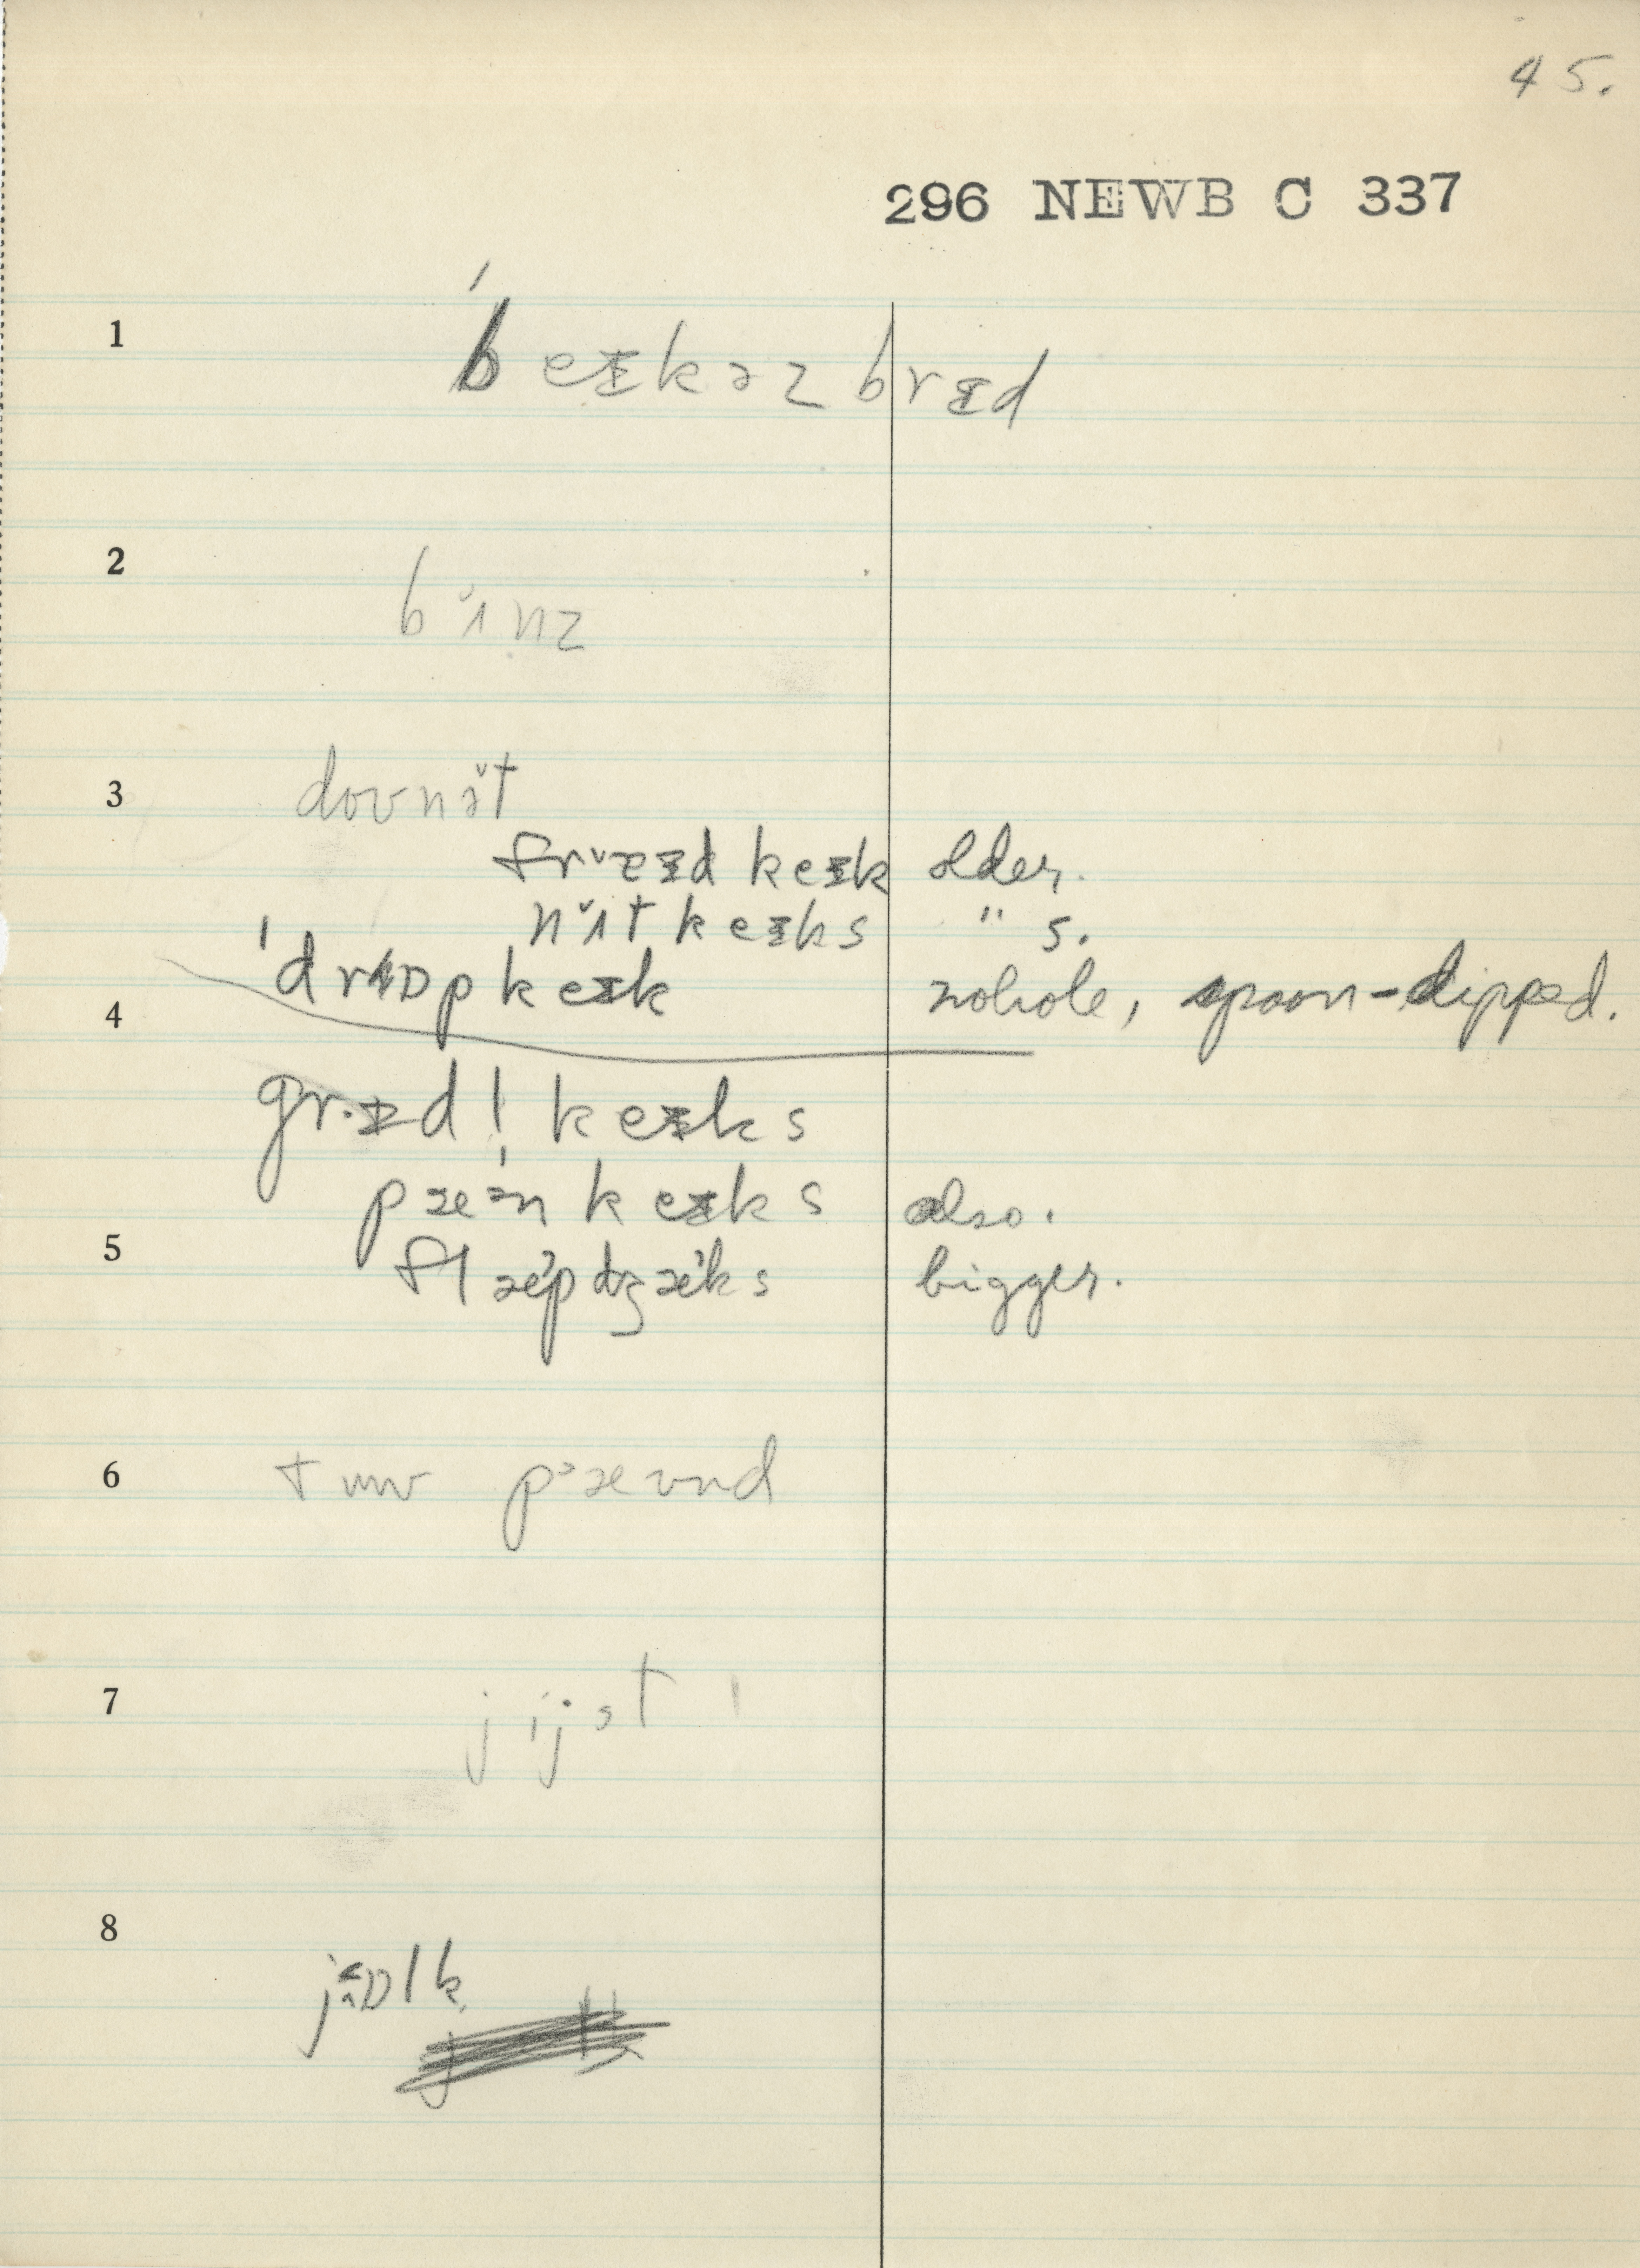 45.
296 NEWB C 337
1
ˈbeɪkəz brɛd
2
bɪ̆nz
3
dovnə̆t
frʌ̆ɛɪd keɪk older.
nʌ̆t keɪks " s.
4
ˈdrɒp keɪk nohole, spoon-dipped.
grɪdl̩ keɪks
pæ̆n keɪks also.
5
flæ̆pdʒæ̆ks bigger.
6
tuw pæʊnd
7
jijst
8
jɒlk